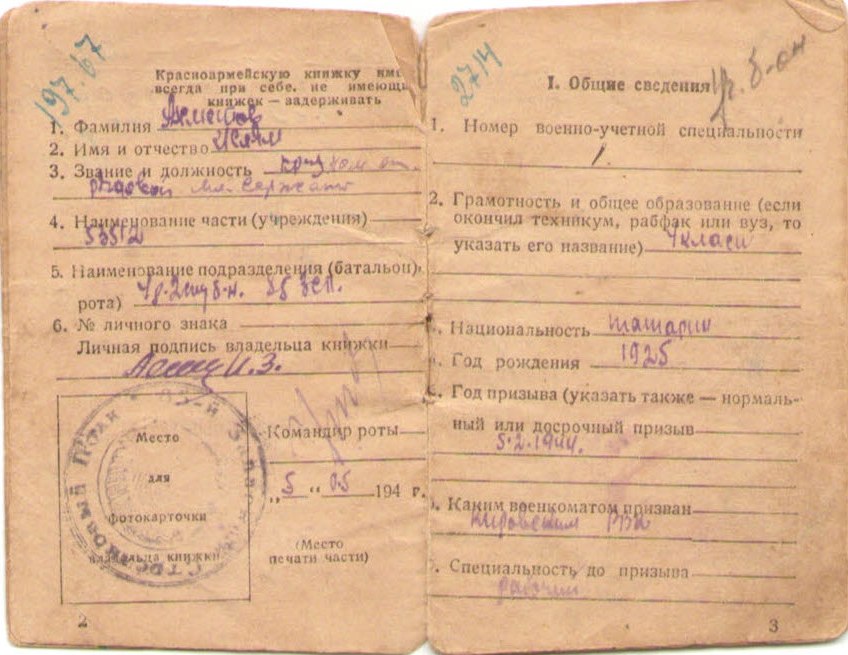 197.67
Красноармейскую книжку име
всегда при себе. не имеющи
книжек — задерживать
1. Фамилия
2. Имя и отчество Ислям
3. Звание и должность ком от.
рядовой мл. сержант
4. Наименование части (учреждения)
5. Наименование подразделения (батальон,
рота)
6. № личного знака
Личная подпись владельца книжки
И.З.
Место
для
фотокарточки
владельца книжки
Командир роты
„5“ 05 194 г.
(Место
печати части)
2
2714
I. Общие сведения
1. Номер военно-учетной специальности
2. Грамотность и общее образование (если
окончил техникум, рабфак или вуз, то
указать его название) 4 класи
Национальность татарин
Год рождения 1925
Год призыва (указать также — нормаль-
ный или досрочный призыв
5.2.1944.
Каким военкоматом призван
Кировским РВК
Специальность до призыва
рабочий
3